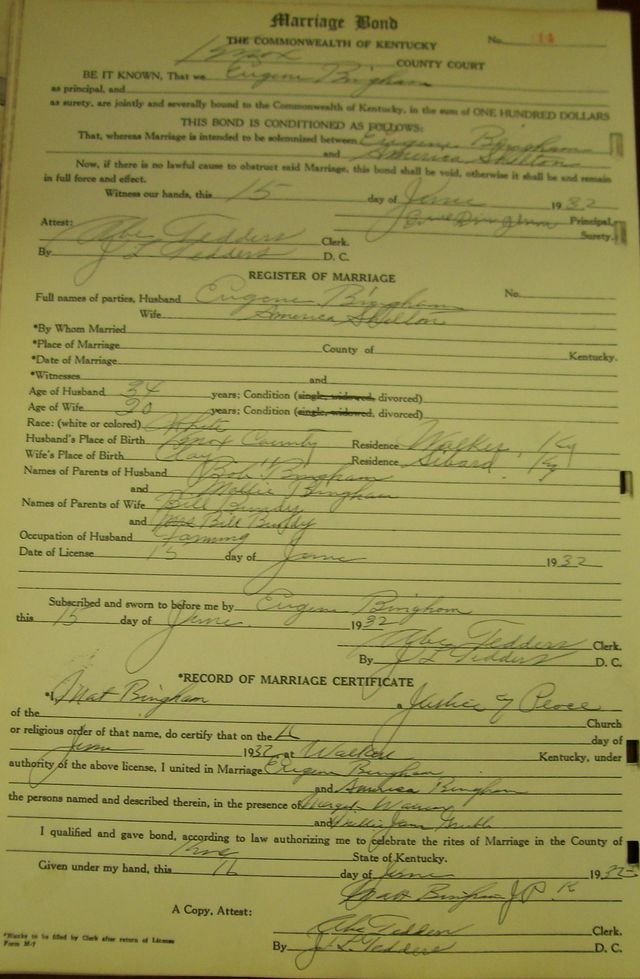 Marriage Bond
THE COMMONWEALTH OF KENTUCKY No.
Knox COUNTY COURT
BE IT KNOWN, That we Eugene Bingham
as principal, and
as surety, are jointly and severally bound to the Commonwealth of Kentucky, in the sum of ONE HUNDRED DOLLARS
THIS BOND IS CONDITIONED AS FOLLOWS:
That, whereas Marriage is intended to be solemnized between Eugene Bingham
and America Skelton
Now, if there is no lawful cause to obstruct said Marriage, this bond shall be void, otherwise it shall be and remain
in full force and effect.
Witness our hands, this 15 day of June 1932
Principal,
Attest: Abe Tedders Clerk. Surety.
By J L Tedders D. C.
REGISTER OF MARRIAGE
Full names of parties, Husband Eugene Bingham No.
Wife America Skelton
*By Whom Married
*Place of Marriage County of Kentucky.
*Date of Marriage
*Witnesses and
Age of Husband 34 years; Condition (single, widowed, divorced)
Age of Wife 20 years; Condition (single, widowed, divorced)
Race: (white or colored) White
Husband's Place of Birth Knox County Residence Walker, Ky
Wife's Place of Birth Clay Residence Ky
Names of Parents of Husband Bob Bingham
and Mollie Bingham
Names of Parents of Wife Bill Bundy
and Mrs Bill Bundy
Occupation of Husband Farming
Date of License 15 day of June 1932
Subscribed and sworn to before me by Eugene Bingham
this 15 day of June 1932
Abe Tedders Clerk.
By J L Tedders D. C.
*RECORD OF MARRIAGE CERTIFICATE
*I, Mat Bingham a Justice of Peace
of the Church
or religious order of that name, do certify that on the day of
June 1932 at Walker Kentucky, under
authority of the above license, I united in Marriage Eugene Bingham
and America Bingham
the persons named and described therein, in the presence of
and
I qualified and gave bond, according to law authorizing me to celebrate the rites of Marriage in the County of
Knox State of Kentucky.
Given under my hand, this 16 day of June 1932
Matt Bingham J P K
A Copy, Attest:
Abe Tedders Clerk.
By J L Tedders D. C.
*Blanks to be filled by Clerk after return of License
Form M-7